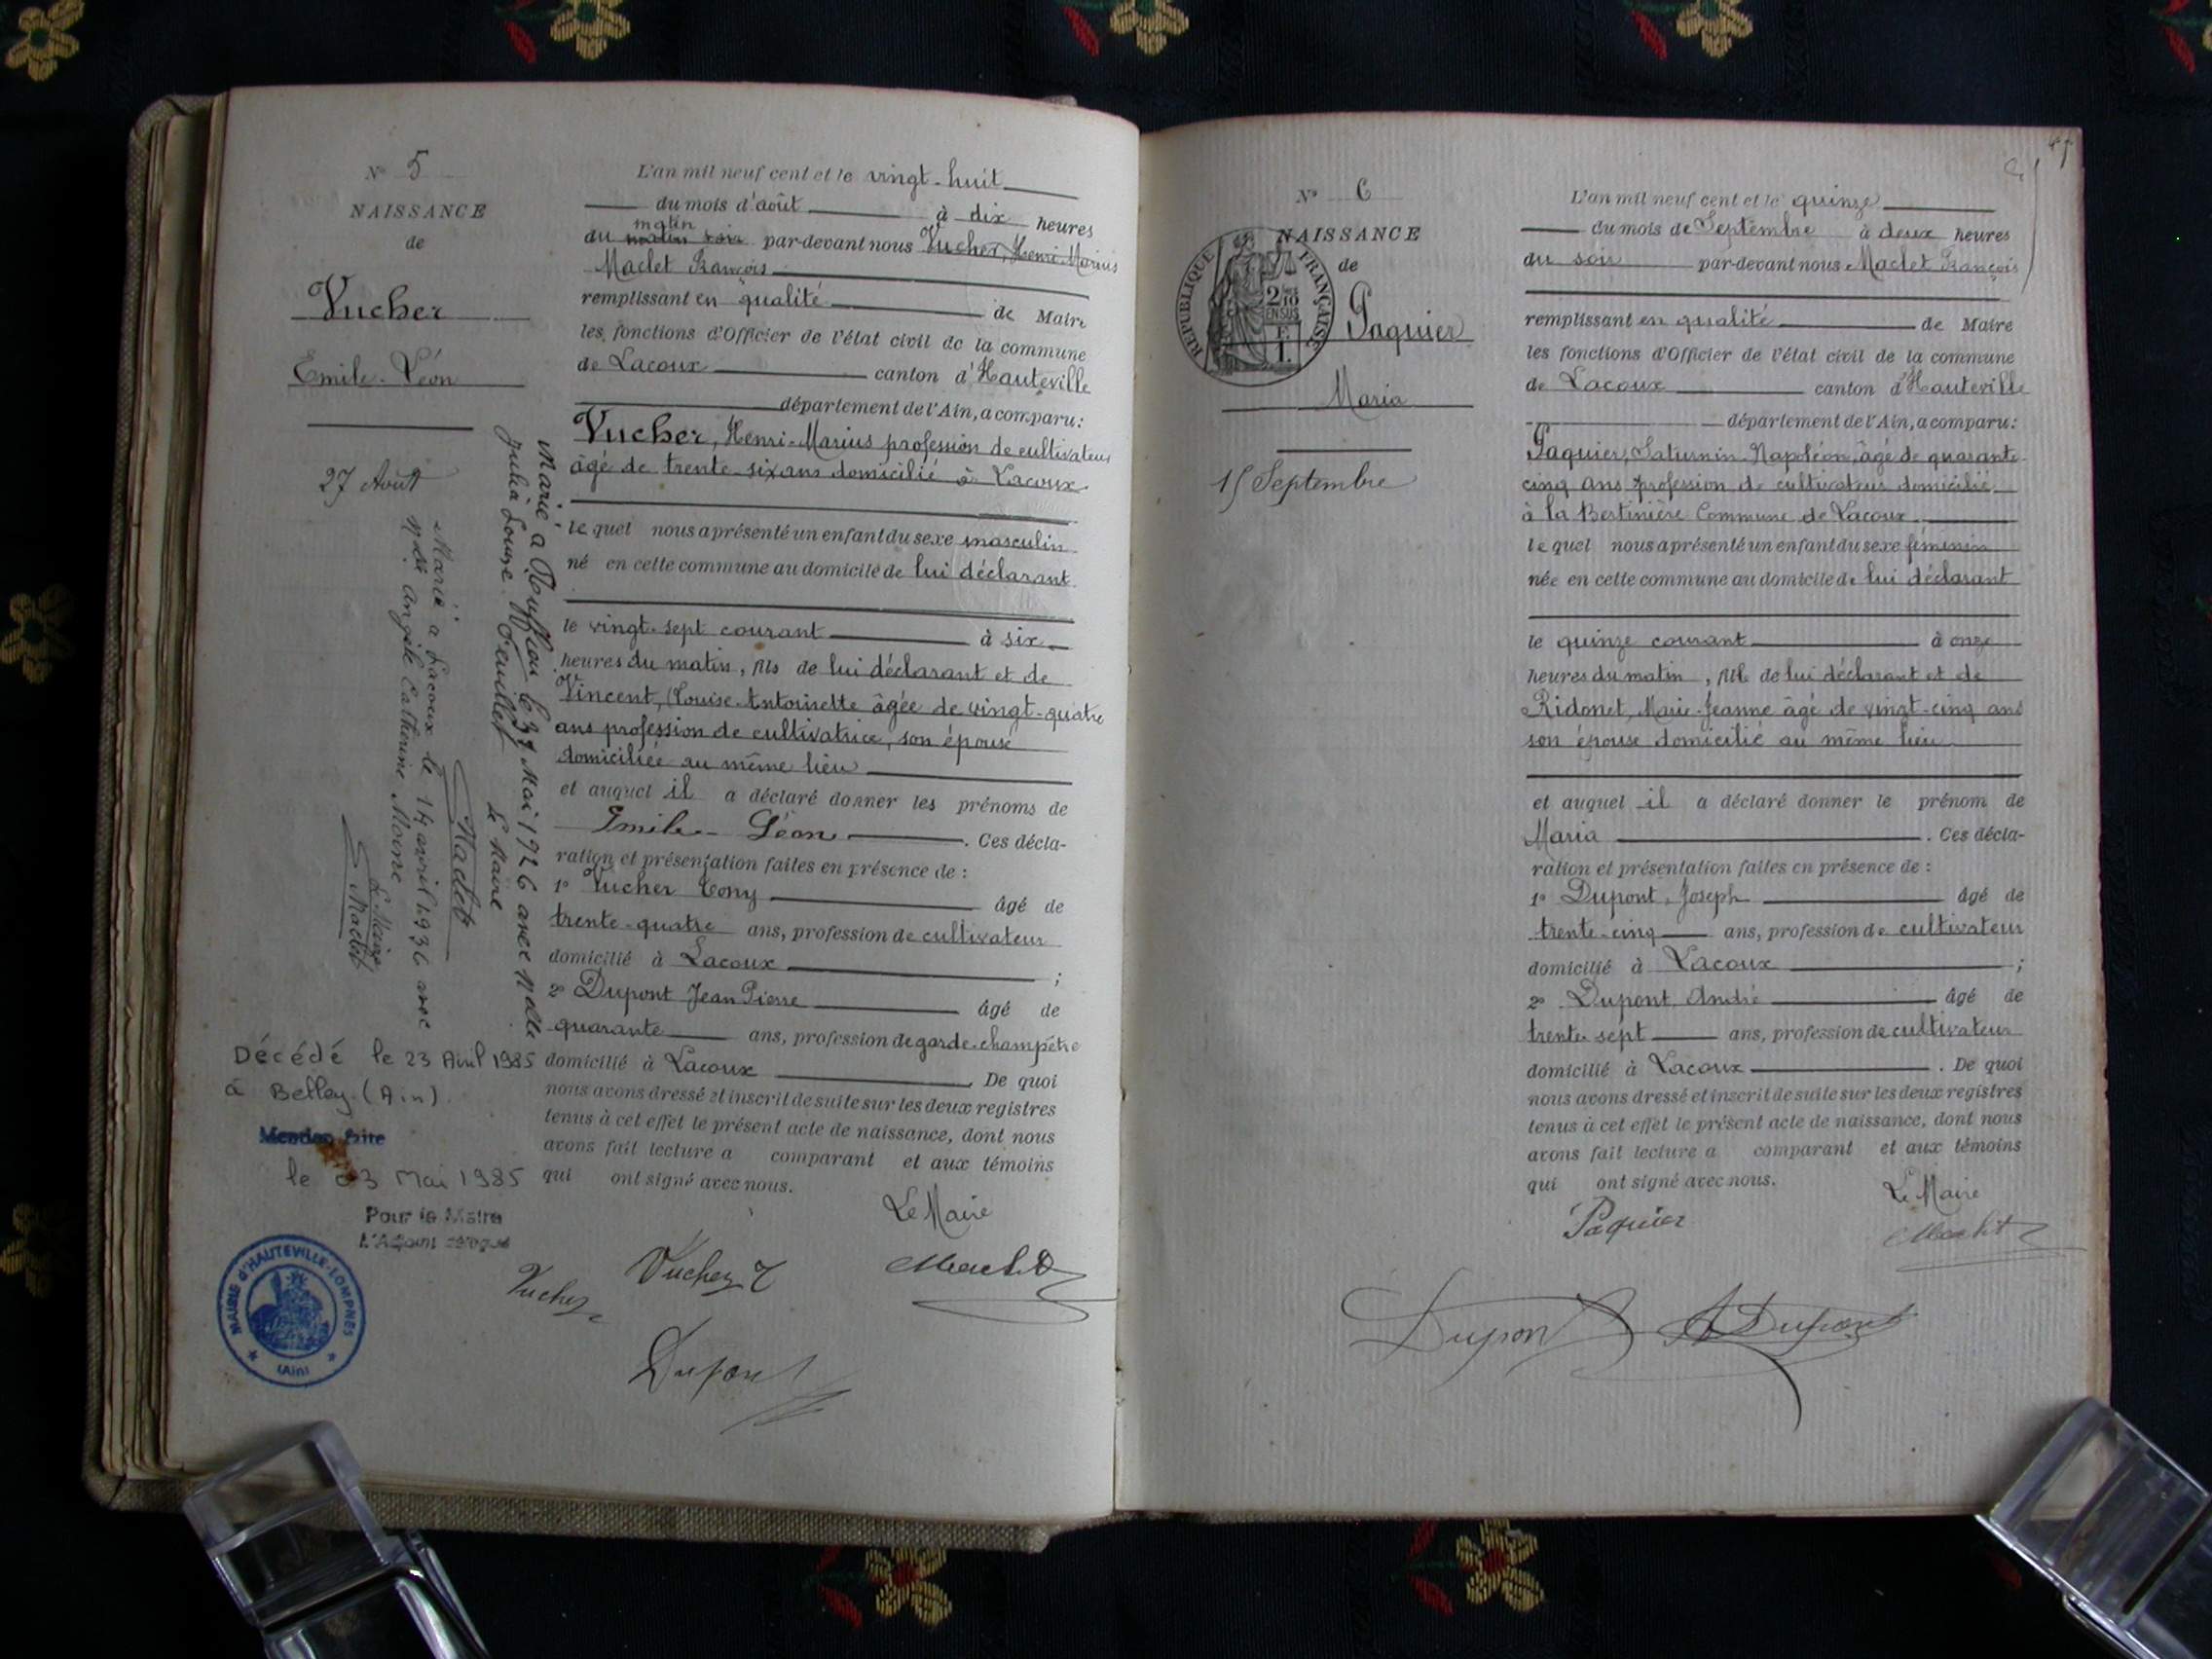 N° 5
NAISSANCE
de
Vucher
Emile-Léon
27 Août
Marié à Ruffieu le 31 Mai 1926 avec Melle
Julia Louise
Le Maire
Maclet
Marié à Lacoux le 14 avril 1936 avec
Mlle Angèle Catherine Moine
Le Maire
Maclet
Décédé le 23 Avril 1985
à Belley (Ain)
Mention faite
le 03 Mai 1985
Pour le Maire
L'Adjoint délégué
MAIRIE d'HAUTEVILLE-LOMPNES
(Ain)
L'an mil neuf cent et le vingt-huit
du mois d'août à dix heures
matin
du matin soir par-devant nous Vucher, Henri-Marius
Maclet François
remplissant en qualité de Maire
les fonctions d'Officier de l'état civil de la commune
de Lacoux canton d'Hauteville
département de l'Ain, a comparu:
Vucher, Henri-Marius profession de cultivateur
âgé de trente-six ans domicilié à Lacoux
le quel nous a présenté un enfant du sexe masculin
né en cette commune au domicile de lui déclarant
le vingt-sept courant à six
heures du matin, fils de lui déclarant et de
Vincent, Louise-Antoinette âgée de vingt-quatre
ans profession de cultivatrice, son épouse
domiciliée au même lieu
et auquel il a déclaré donner les prénoms de
Emile-Léon. Ces décla-
ration et présentation faites en présence de :
1° Vucher Tony âgé de
trente-quatre ans, profession de cultivateur
domicilié à Lacoux ;
2° Dupont Jean Pierre âgé de
quarante ans, profession de garde-champêtre
domicilié à Lacoux. De quoi
nous avons dressé et inscrit de suite sur les deux registres
tenus à cet effet le présent acte de naissance, dont nous
avons fait lecture a comparant et aux témoins
qui ont signé avec nous.
Le Maire
Vucher Vucher T Maclet
Dupont
N° 6
NAISSANCE
de
RÉPUBLIQUE FRANÇAISE
2/10
EN SUS
Paquier
Maria
15 Septembre
L'an mil neuf cent et le quinze
du mois de Septembre à deux heures
du soir par-devant nous Maclet François
remplissant en qualité de Maire
les fonctions d'Officier de l'état civil de la commune
de Lacoux canton d'Hauteville
département de l'Ain, a comparu:
Paquier, Saturnin-Napoléon, âgé de quarante-
cinq ans profession de cultivateur domicilié
à la Bertinière Commune de Lacoux
le quel nous a présenté un enfant du sexe féminin
née en cette commune au domicile de lui déclarant
le quinze courant à onze
heures du matin, fille de lui déclarant et de
Ridonet, Marie-Jeanne âgé de vingt-cinq ans
son épouse domicilié au même lieu
et auquel il a déclaré donner le prénom de
Maria. Ces décla-
ration et présentation faites en présence de :
1° Dupont, Joseph âgé de
trente-cinq ans, profession de cultivateur
domicilié à Lacoux ;
2° Dupont André âgé de
trente-sept ans, profession de cultivateur
domicilié à Lacoux. De quoi
nous avons dressé et inscrit de suite sur les deux registres
tenus à cet effet le présent acte de naissance, dont nous
avons fait lecture a comparant et aux témoins
qui ont signé avec nous.
Le Maire
Paquier Maclet
Dupont A Dupont